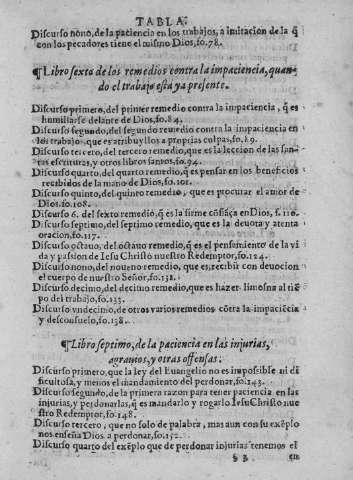 TABLA.
Discurso nono, de la paciencia en los trabajos, a imitacion de la q̃
con los pecadores tiene el mismo Dios, fo.78.
¶ Libro sexto de los remedios contra la impaciencia, quan-
do el trabajo esta ya presente.
Discurso primero, del primer remedio contra la impaciencia, q̃ es
humiliarse delante de Dios, fo.84.
Discurso segundo, del segundo remedio contra la impaciencia en
los trabajos que es atribuyllos a proprias culpas, fo.89.
Discurso tercero, del tercero remedio, que es la leccion de las san-
tas escrituras, y otros libros santos, fo.94.
Discurso quarto, del quarto remedio, q̃ es pensar en los beneficios
recibidos de la mano de Dios, fo.101.
Discurso quinto, del quinto remedio, que es procurar el amor de
Dios, fo.108.
Discurso 6. del sexto remedio, q̃ es la firme cõfiãça en Dios, f. 110.
Discurso septimo, del septimo remedio, que es la deuota y atenta
oracion, fo.117.
Discurso octauo, del octauo remedio, q̃ es el pensamiento de la vi
da y passion de Iesu Christo nuestro Redemptor, fo.124.
Discurso nono, del noueno remedio, que es, recibir con deuocion
el cuerpo de nuestro Señor, fo.131.
Discurso decimo, del decimo remedio, que es hazer limosna al tiẽ
po del trabajo, fo.133.
Discurso vndecimo, de otros varios remedios cõtra la impaciẽcia
y desconsuelo, fo.138.
¶ Libro septimo, de la paciencia en las injurias,
agrauios, y otras offensas.
Discurso primero, que la ley del Euangelio no es impossible ni di
ficultosa, y menos el mandamiento del perdonar, fo.143.
Discurso segundo, de la primera razon para tener paciencia en las
injurias, y perdonarlas, q̃ es mandarlo y rogarlo Iesu Christo nue
stro Redemptor, fo.148.
Discurso tercero, que no solo de palabra, mas aun con su exẽplo
nos enseña Dios a perdonar, fo.152.
Discurso quarto del exẽplo que de perdonar injurias tenemos el